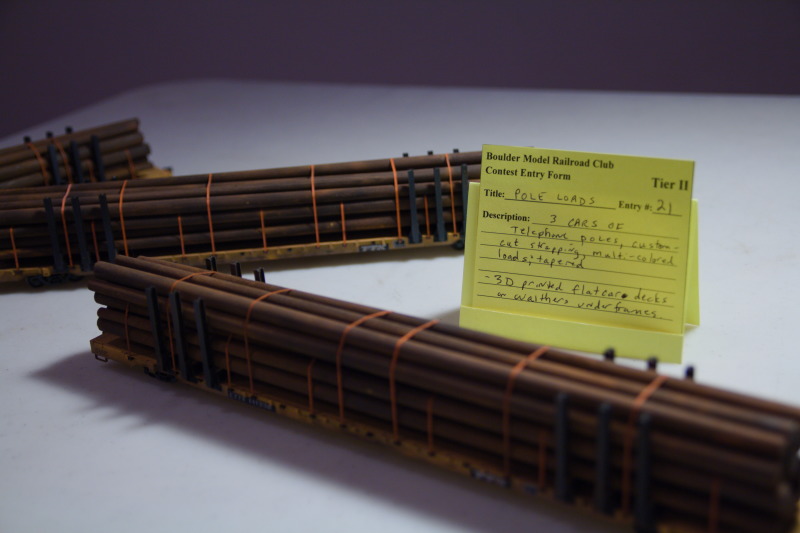 Boulder Model Railroad Club
Contest Entry Form
Tier II
Title: POLE LOADS Entry #: 21
Description: 3 CARS OF
Telephone poles, custom-
cut strapping, multi-colored
loads, tapered
- 3D printed flatcar decks
on Walthers underframes.